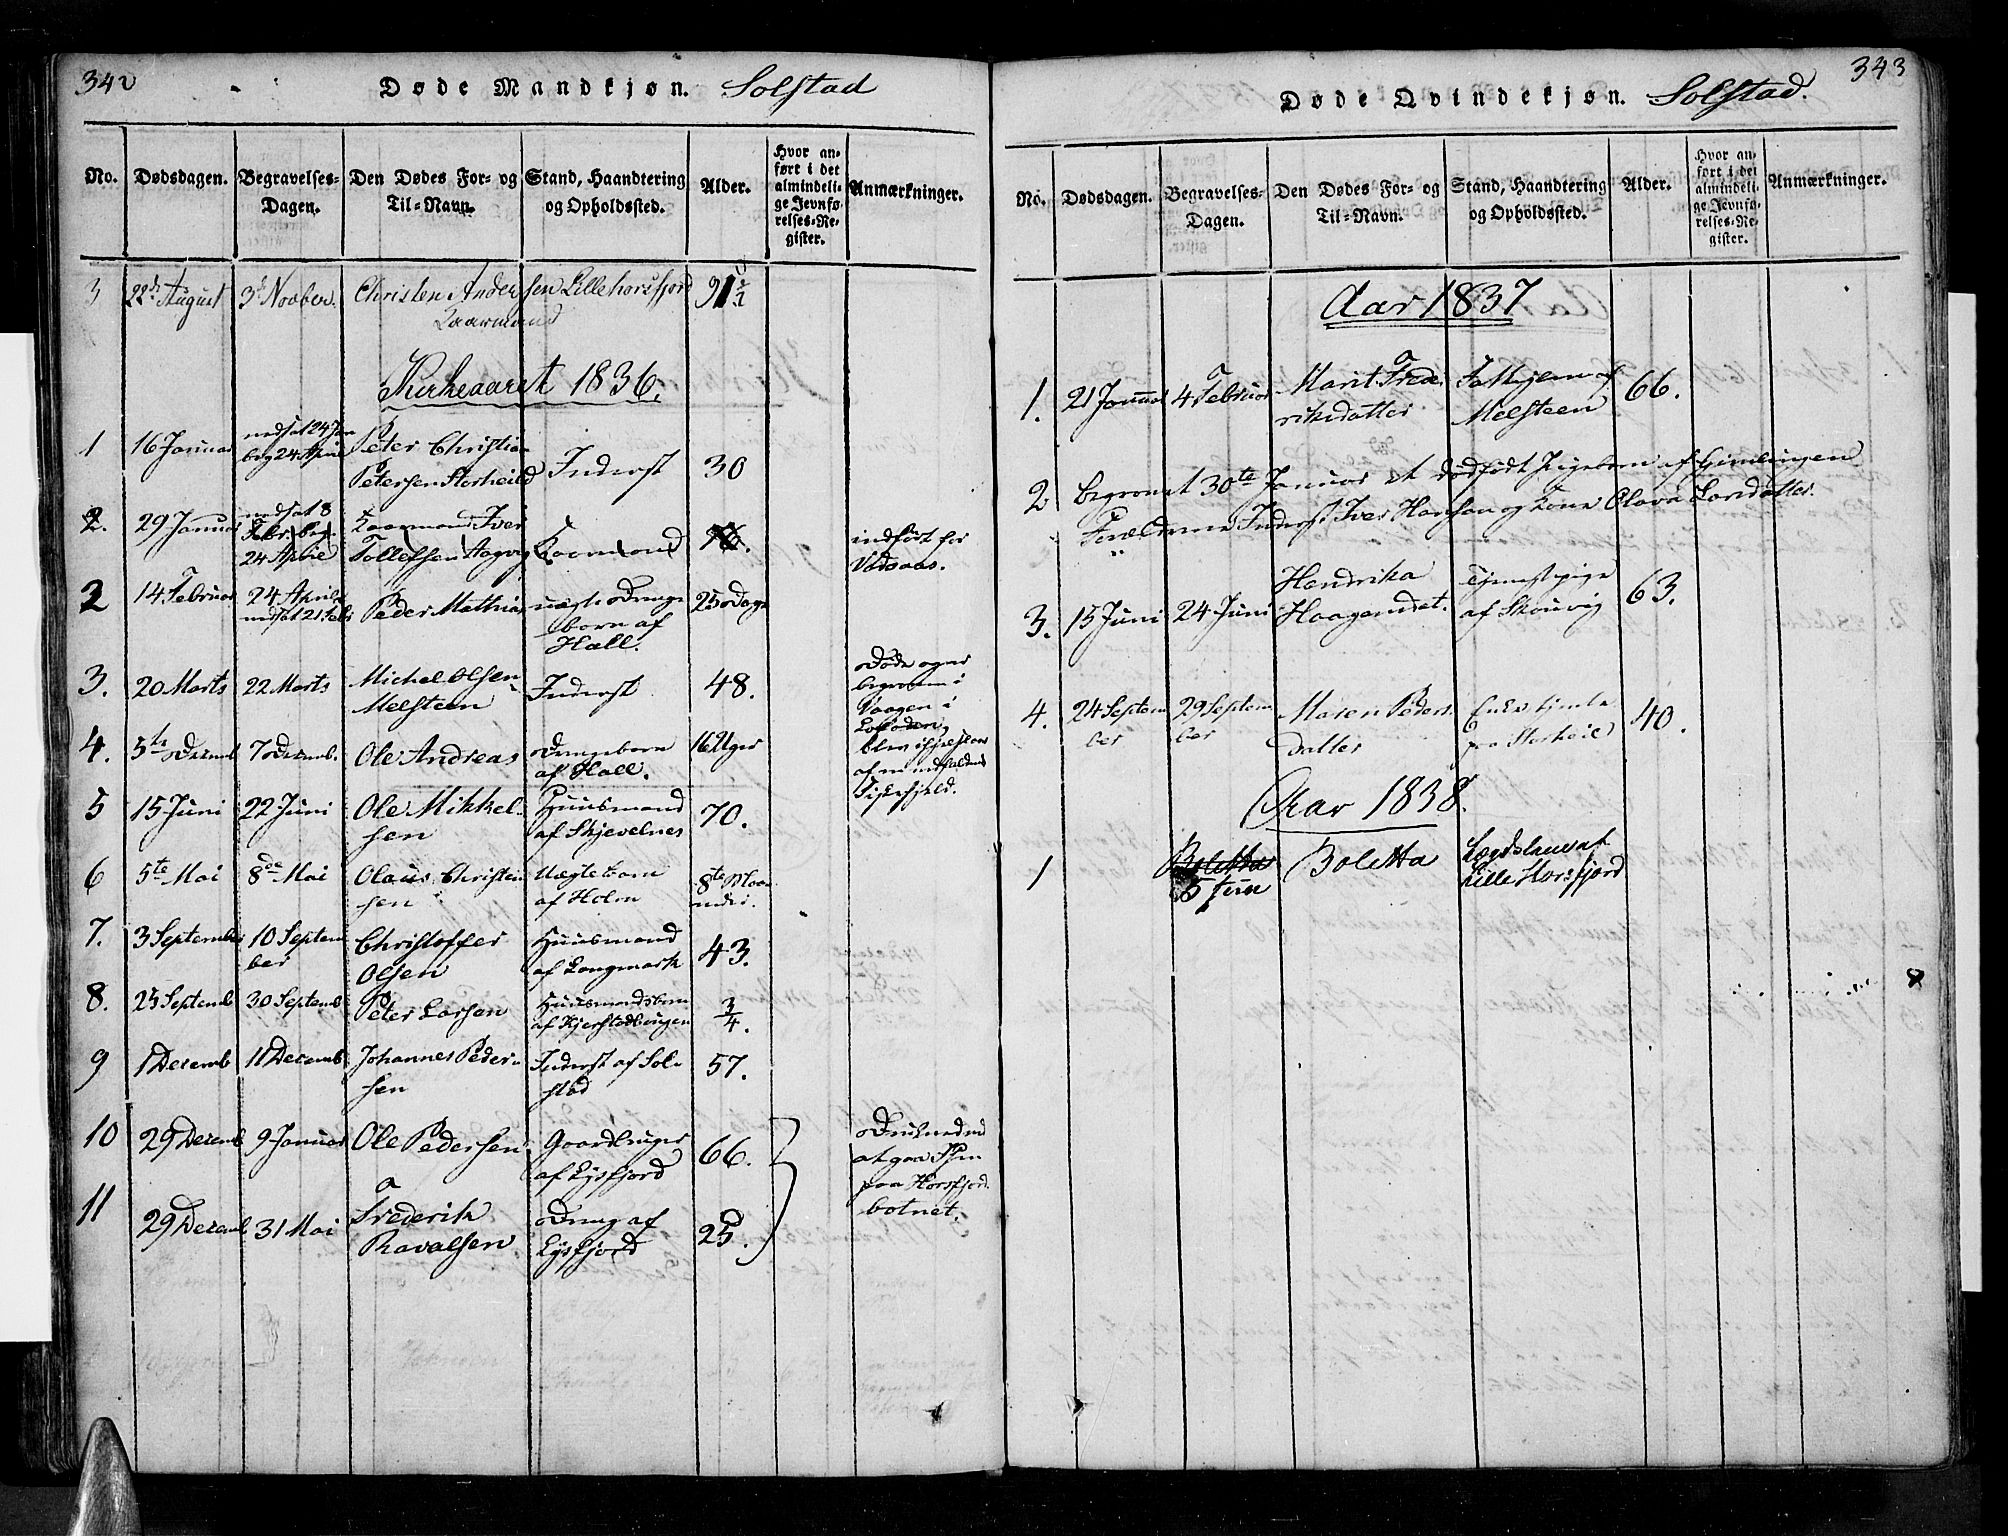 342
Døde Mandkjøn. Solstad
No. Dødsdagen. Begravelses-Dagen. Den Dødes For- og Til-Navn. Stand, Haandtering og Opholdssted. Alder. Hvor anført i det almindelige Jevnførelses-Register. Anmærkninger.
3 22de August 3d Novber. Christen Andersen Lillehorsfjord 91 1/2
Kaarmand
Kirkeaaret 1836.
1 16 Januar nedsat 24 Jan
beg 24 April Peter Christian
Petersen Storheild Inderst 30
2. 29 Januar nedsat 8
Febr. beg.
24 April Kaarmand Iver
Tollefsen Aagvig Kaarmand 76. indført for
Vadsaas.
2 14 Februar 24 April
nedsat 21 Febr Peder Mathias uægte Drenge
barn af
Hall. 25 Dage
3. 20 Marts 22 Marts Michel Olsen
Melsteen Inderst 48. Døde og er
begraven i
Vaagen i
Lofoden,
4. 5te Decemb 7 Decemb. Ole Andreas Drengebarn
af Hall. 16 Uger
5 15 Juni 22 Juni Ole Mikkel-
sen Huusmand
af Skjevelnes 70.
6 5te Mai 8de Mai Olaus Christen
sen Uægte barn
af Holm 8te Maa
neder.
7. 3 September 10 Septem
ber Christoffer
Olsen Huusmand
af Langmark 43.
8. 25 Septemb 30 Septemb Peter Larsen Huusmandsbarn
af Hjerstadlingen 3/4.
9 1 Decemb 11 Decemb Johannes Peder-
sen Inderst af Sol-
stad 57.
10 29 Decemb 9 Januar Ole Pedersen Gaardbruger
af Eysfjord 66. Druknede ved
at gaa
paa Horsfjord
botnet.
11 29 Decemb 31 Mai Frederik
Ravalsen Dreng af
Eysfjord 25.
343
Døde Qvindekjøn. Solstad.
No. Dødsdagen. Begravelses-Dagen. Den Dødes For- og Til-Navn. Stand, Haandtering og Opholdssted. Alder. Hvor anført i det almindelige Jevnførelses-Register. Anmærkninger.
Aar 1837
1. 21 Januar 4 Februar Marit Frede-
riksdatter
Melsteen 66.
2 Begravet 30te Januar et dødfødt Pigebarn af Gimlingen
Forældrene Inderst Iver Hansen og Kone Olava Larsdatter.
3. 15 Juni 24 Juni Hendrika
Haagensdat. Tjenestpige
af Skouvig 63.
4. 24 Septem
ber 29 Septem
ber Maren Peders
datter Enke tjente
paa Storheil 40.
Aar 1838.
1 Boletta
5 Juni Boletta Lægdslem af
Lille Horsfjord